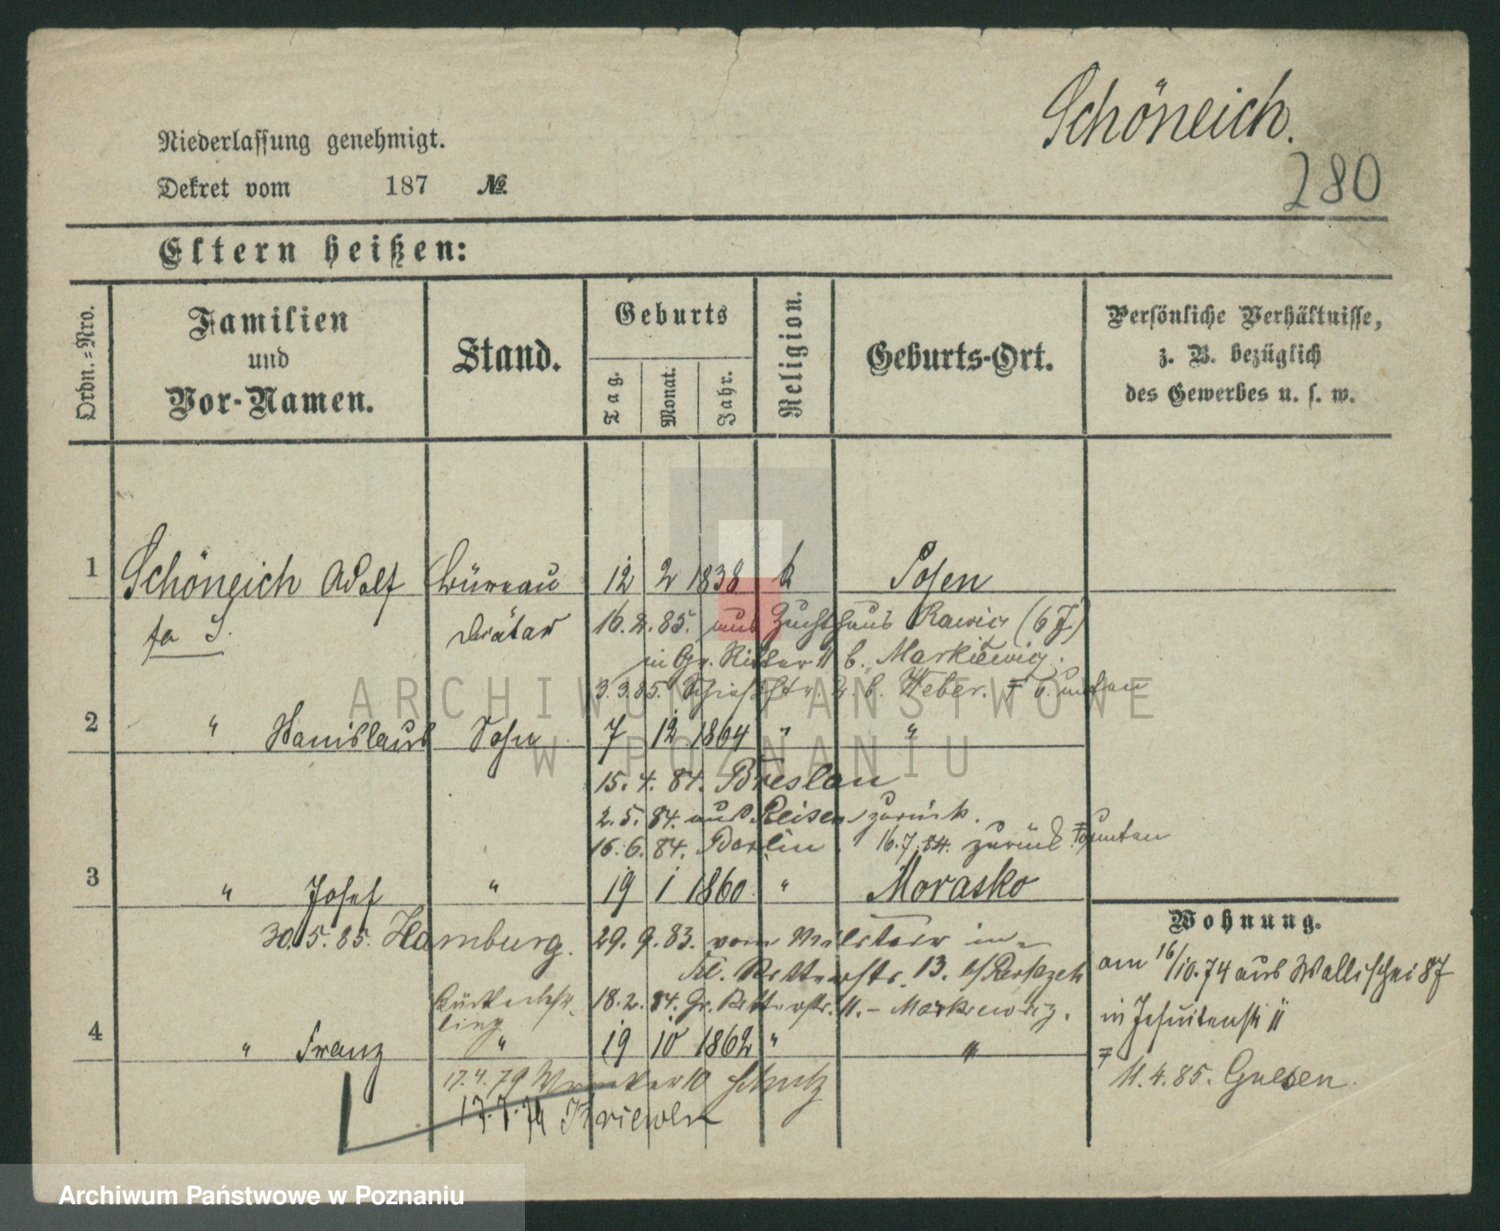 Schöneich.
280
Niederlassung genehmigt.
Dekret vom 187 №
Eltern heißen:
Ordn.-Nro.
Familien
und
Vor-Namen.
Stand.
Geburts
Tag.
Monat.
Jahr.
Religion.
Geburts-Ort.
Persönliche Verhältnisse,
z. B. bezüglich
des Gewerbes u. s. w.
1 Schöneich Adolf Büreau 12 2 1838 k Posen
Diätar
16.2.85. aus Zuchthaus Rawicz (6 J)
in Gr. Ritter 11 b. Markiewicz.
3.3.85. b. Weber. unten
2 " Stanislaus Sohn 7 12 1864 " "
15.4.84. Breslau
2.5.84. aus Reisen zurück.
16.6.84. Berlin 16.7.84. zurück unten
3 " Josef " 19 1 1860 " Morasko
30.5.85. Hamburg. 29.9.83. vom Militair in
13.
18.2.84. Gr. Ritterstr. 11. – Markiewicz.
4 " Franz " 19 10 1862 " "
17.4.79 10
Wohnung.
am 16/10.74 aus Wallischei 87
in Jesuitenstr 11
11.4.85. Gnesen.
ARCHIWUM PAŃSTWOWE
W POZNANIU
Archiwum Państwowe w Poznaniu